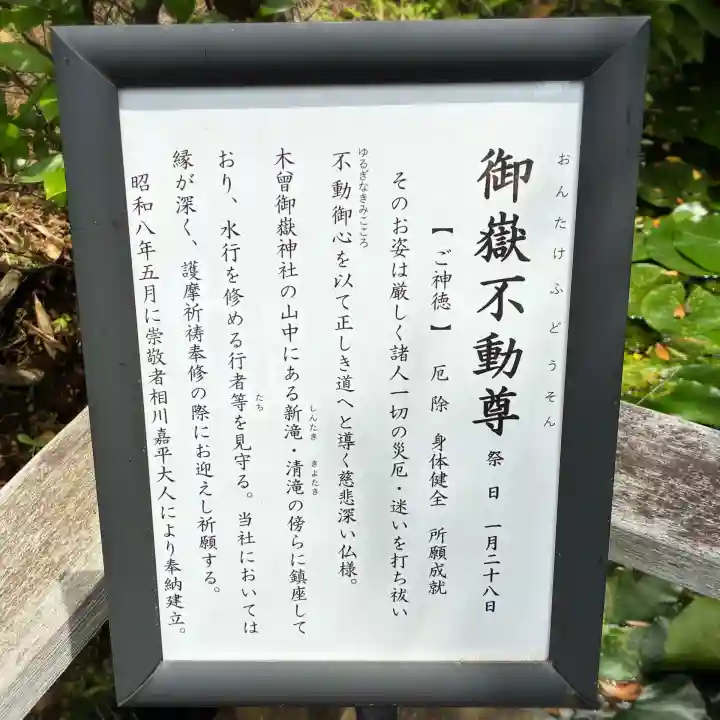 おんたけふどうそん
御嶽不動尊 祭 日 一月二十八日
【ご神徳】 厄 除 身体健全 所願成就
そのお姿は厳しく諸人一切の災厄・迷いを打ち祓い
ゆるぎなきみこころ
不動御心を以て正しき道へと導く慈悲深い仏様。
しんたき きよたき
木曽御嶽神社の山中にある新滝・清滝の傍らに鎮座して
たち
おり、水行を修める行者等を見守る。当社においては
縁が深く、護摩祈祷奉修の際にお迎えし祈願する。
昭和八年五月に崇敬者相川嘉平大人により奉納建立。